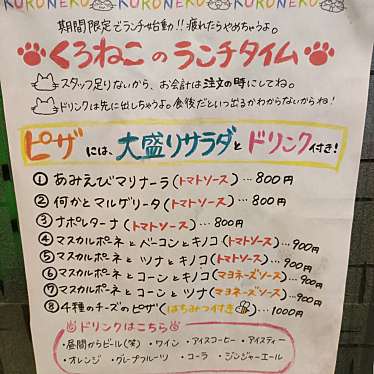 KURONEKO KURONEKO KURONEKO
期間限定でランチ始動!!疲れたらやめちゃうよ。
くろねこのランチタイム
スタッフ足りないから、お会計は注文の時にしてね。
ドリンクは先に出しちゃうよ。食後だといつ出るかわからないからね!
ピザには、大盛りサラダとドリンク付き!
① あみえびマリナーラ(トマトソース)…800円
② 何かとマルゲリータ(トマトソース)…800円
③ ナポレターナ(トマトソース)…800円
④ マスカルポーネとベーコンとキノコ(トマトソース)…900円
⑤ マスカルポーネとツナとキノコ(トマトソース)…900円
⑥ マスカルポーネとコーンとキノコ(マヨネーズソース)…900円
⑦ マスカルポーネとコーンとツナ(マヨネーズソース)…900円
⑧ 4種のチーズのピザ(はちみつ付き)…1000円
ドリンクはこちら
・昼間からビール(笑)・ワイン・アイスコーヒー・アイスティー
・オレンジ・グレープフルーツ・コーラ・ジンジャーエール